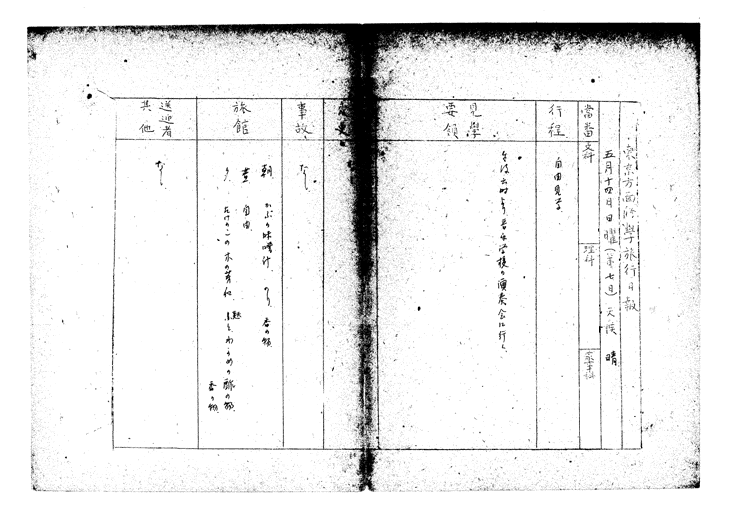 東京方面修學旅行日報
五月十四日 日曜（第七日） 天候 晴
當番 文科 理科 家事科
行程 自由見学
見學要領 午後六時より音楽学校の演奏会に行く
変更
事故 なし
旅館 朝 かぶの味噌汁 のり 香の物
昼 自由
夕 たけのこの木の芽和 酢の物
香の物
送迎者其他 なし